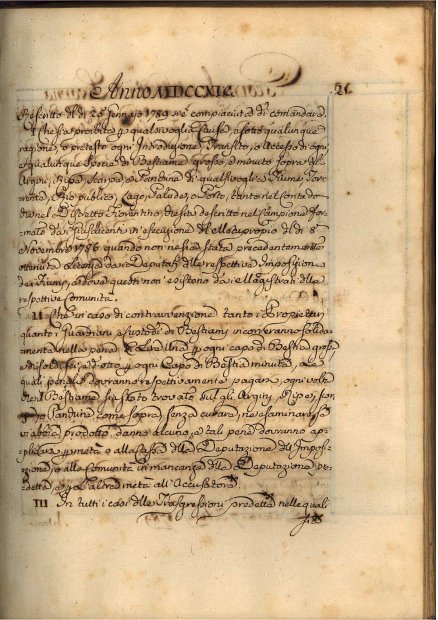 Anno MDCCXIC. 21
Rescritto del di 26 Gennajo 1789 s'è compiaciuta di comandare
I. che sia proibito p qualsivoglia Causa, o sotto qualunque
ragione, o pretesto ogni Introduzione, Transito, o Accesso di ogni,
e qualunque Specie di Bestiame grosso, o minuto sopra gli
Argini, Ripa, Scarpa, o Panchina di qualsivoglia Fiume, Tor-
rente, Rio pubblico, Lago, Palude, o Porto, tanto nel Contado
che nel Distretto Fiorentino, che sia descritto nel Campione for-
mato dai Giusdicenti in esecuzione del Motuproprio del di 8
Novembre 1786 quando non ne sia stata precedentemente
ottenuta Licenza dai Deputati delle respettive Imposizioni
dei Fiumi, e dove questi non esistono dai Magistrati delle
respettive Comunità.
II. che in caso di contravvenzione tanto i Proprietarj
quanto i Guardiani, o Custodi di Bestiami incorreranno solida-
mente nella pena di Lire Una p ogni capo di Bestia grossa
e di soldi p ogni Capo di Bestia minuta, Le
quali pene si dovranno respettivamente pagare, ogni volta
che il Bestiame sia stato trovato sugli Argini, Ripe,
Panchine come sopra, senza curare, ne esaminare se
vi abbia prodotto danno alcuno, e tali pene dovranno ap-
plicarsi p metà o alla Cassa della Deputazione dell' Imposi-
zione, o alla Comunità in mancanza della Deputazione pre-
detta, e p l'altra metà all' Accusatore.
III. In tutti i casi delle Trasgressioni predette nelle quali